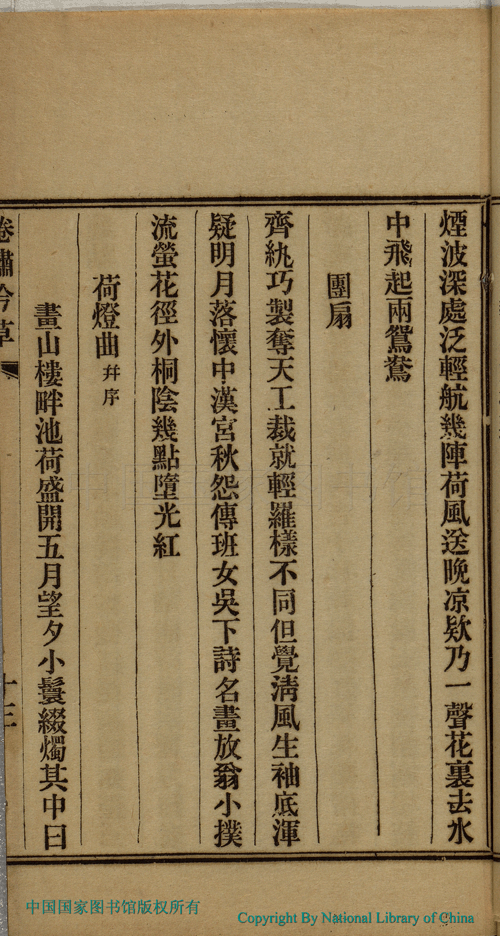 煙波深處泛輕航幾陣荷風送晚凉欵乃一聲花裏去水
中飛起兩鴛鴦
團扇
齊紈巧製奪天工裁就輕羅樣不同但覺淸風生袖底渾
疑明月落懷中漢宮秋怨傳班女吳下詩名畫放翁小撲
流螢花徑外桐陰幾點墮光紅
荷燈曲 幷序
畫山樓畔池荷盛開五月望夕小鬟綴燭其中曰
吟草
十三
中国国家图书馆版权所有
Copyright By National Library of China